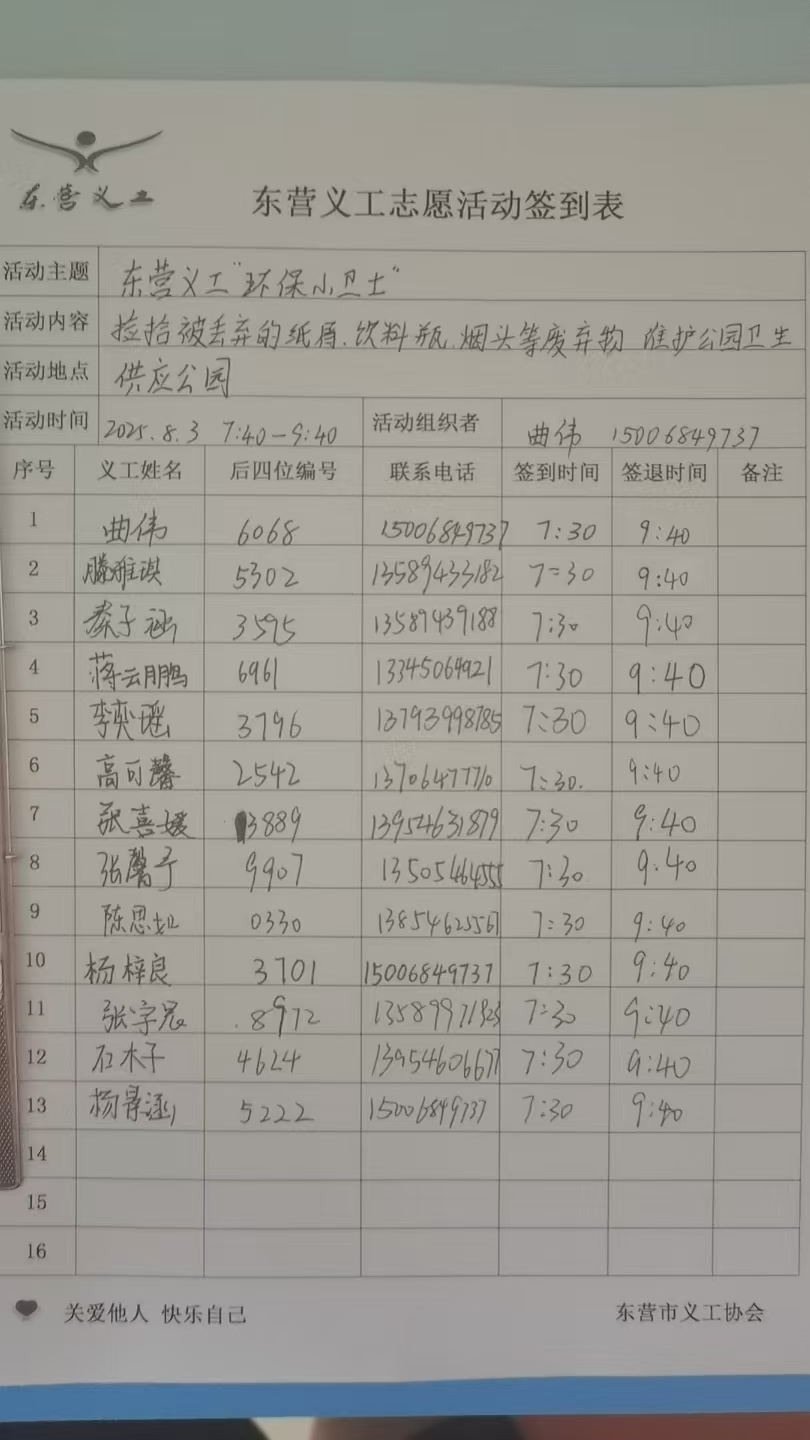 东营义工
东营义工志愿活动签到表
活动主题 东营义工"环保小卫士"
活动内容 捡拾被丢弃的纸屑.饮料瓶.烟头等废弃物 维护公园卫生
活动地点 供应公园
活动时间 2025.8.3 7:40-9:40 活动组织者 曲伟 15006849737
序号 义工姓名 后四位编号 联系电话 签到时间 签退时间 备注
1 曲伟 6068 15006849737 7:30 9:40
2 滕雅淇 5302 13589433182 7:30 9:40
3 秦子涵 3595 13589439188 7:30 9:40
4 蒋云鹏 6961 13345064921 7:30 9:40
5 李奕瑶 3796 13793998785 7:30 9:40
6 高可馨 2542 13706477710 7:30. 9:40
7 张喜媛 3889 13954631879 7:30 9:40
8 张馨予 9907 13505464555 7:30 9:40
9 陈思如 0330 13854625567 7:30 9:40
10 杨梓良 3701 15006849737 7:30 9:40
11 张宇 8972 7:30 9:40
12 石木子 4624 13954606677 7:30 9:40
13 杨景涵 5222 15006849737 7:30 9:40
14
15
16
关爱他人 快乐自己 东营市义工协会